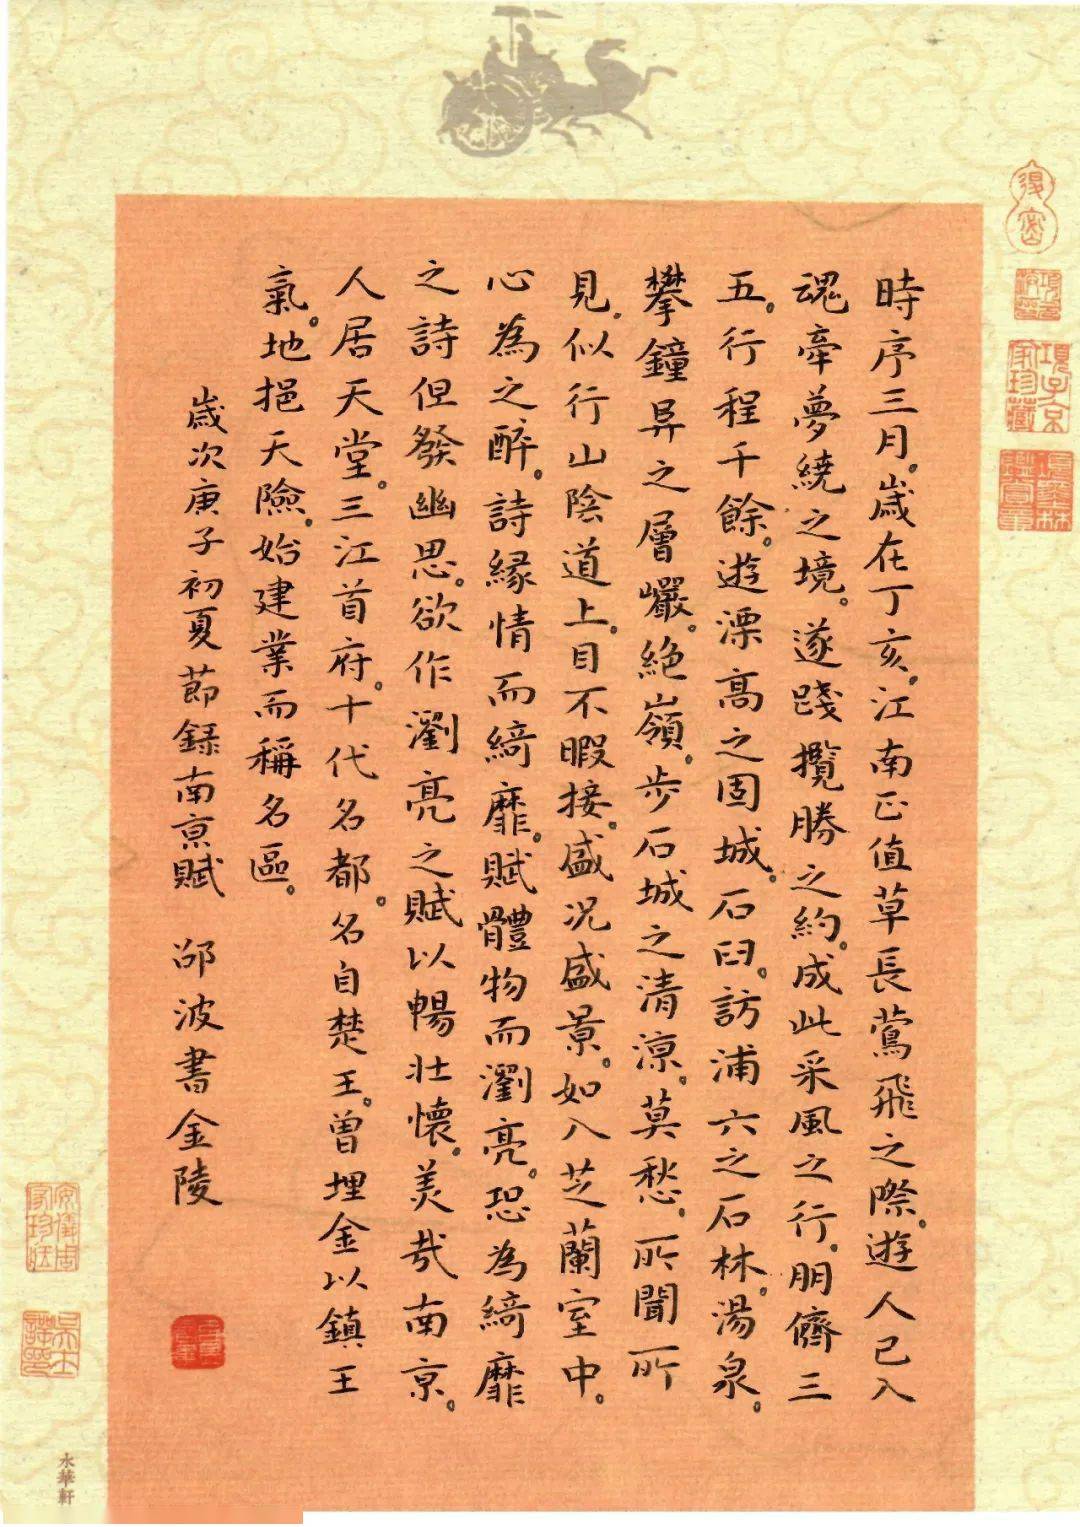 時序三月。歲在丁亥。江南正值草長鶯飛之際。遊人已入
魂牽夢繞之境。遂踐攬勝之約。成此采風之行。朋儕三
五。行程千餘。遊溧高之固城。石臼。訪浦六之石林。湯泉。
攀鐘昇之層巖。絕嶺。步石城之清涼。莫愁。所聞所
見。似行山陰道上。目不暇接。盛況盛景。如入芝蘭室中。
心為之醉。詩緣情而綺靡。賦體物而瀏亮。恐為綺靡
之詩但發幽思。欲作瀏亮之賦以暢壯懷。美哉南京。
人居天堂。三江首府。十代名都。名自楚王。曾埋金以鎮王
氣。地挹天險。始建業而稱名區。
歲次庚子初夏節錄南京賦 邵波書金陵
項子京
家珍藏
永華軒